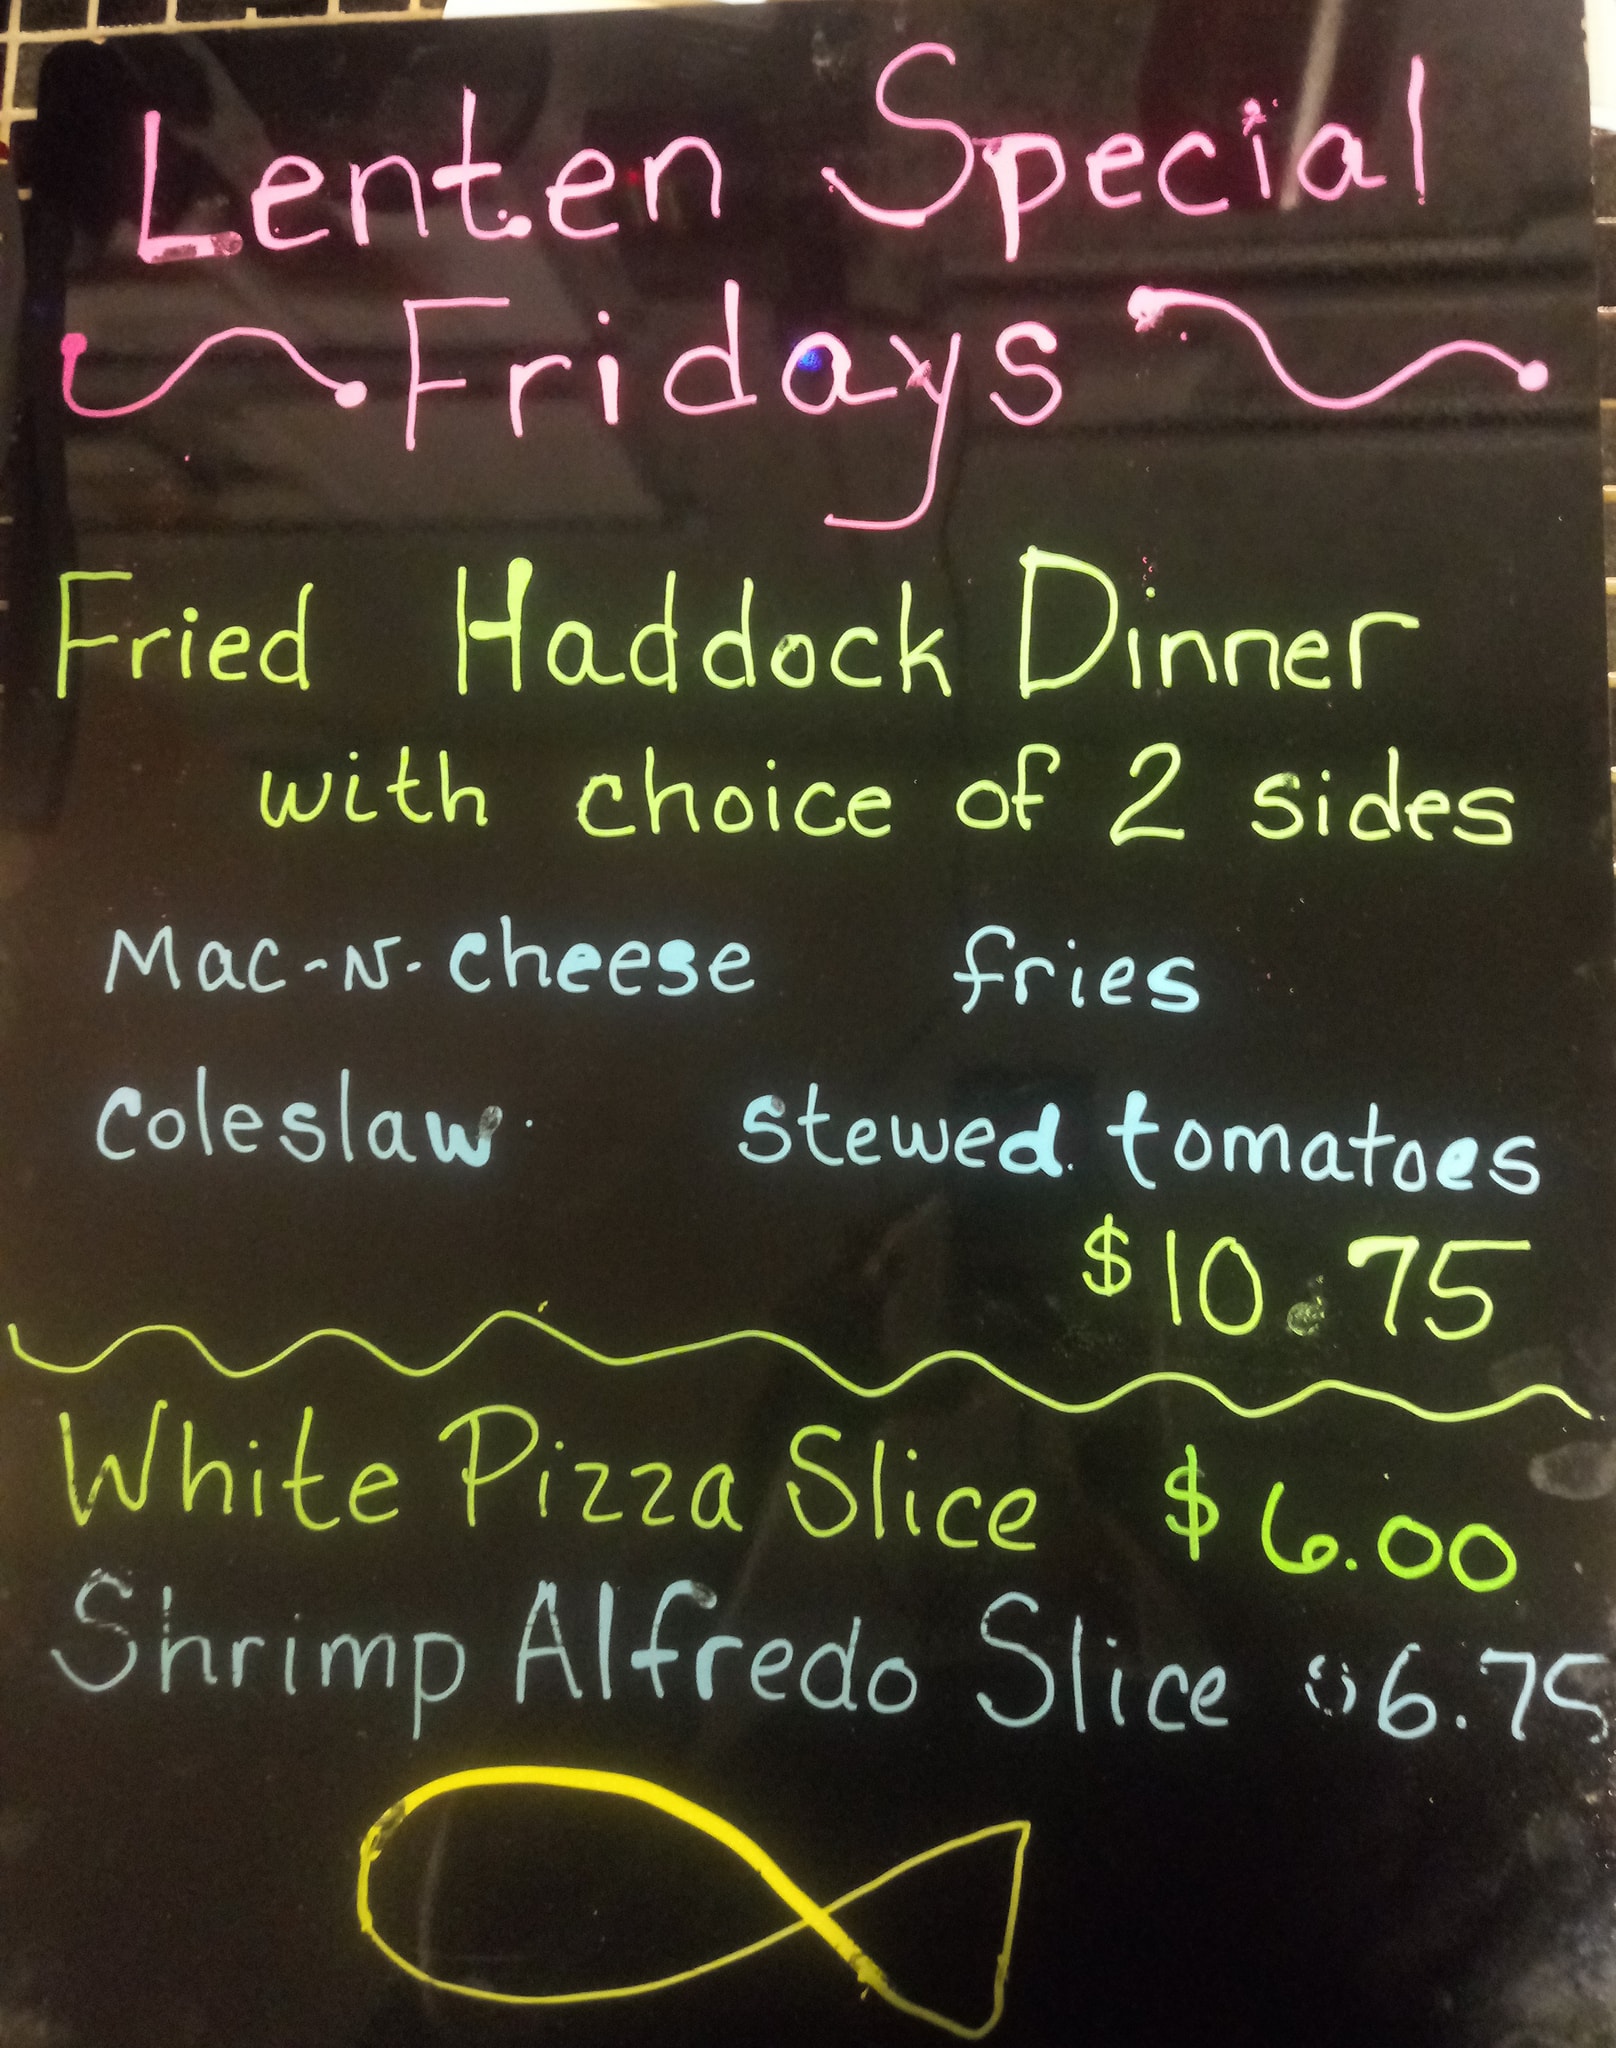 Lenten Special
Fridays
Fried Haddock Dinner
with choice of 2 sides
Mac-N-Cheese fries
Coleslaw stewed tomatoes
$10.75
White Pizza Slice $6.00
Shrimp Alfredo Slice $6.75